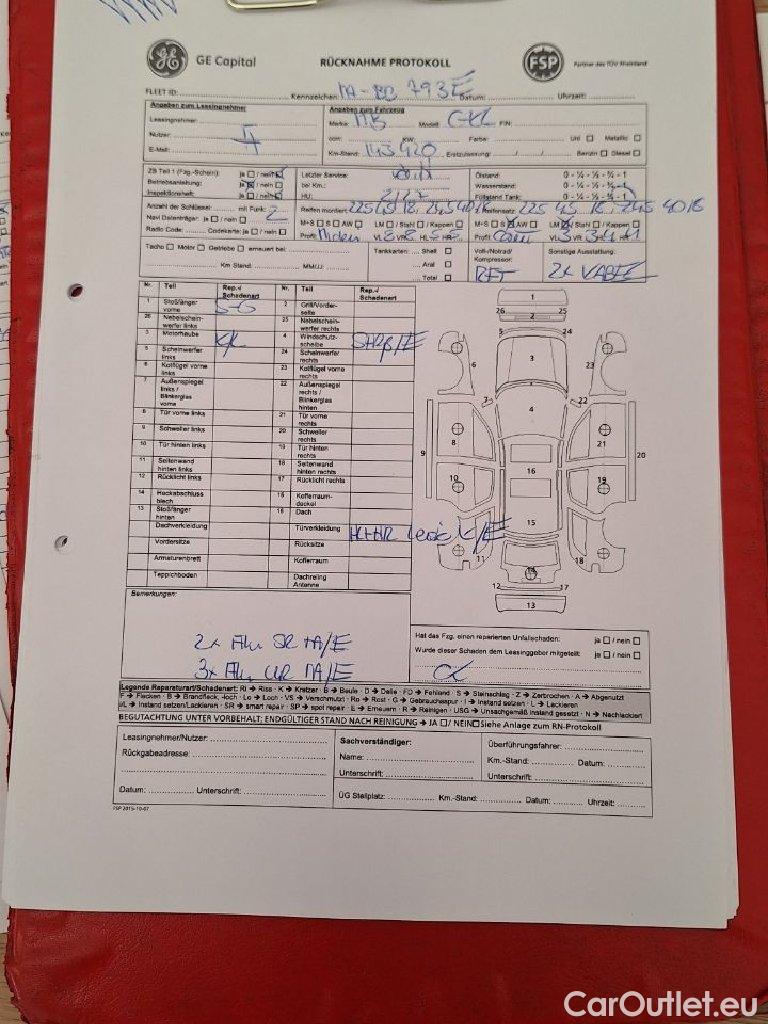 GE Capital
RÜCKNAHME PROTOKOLL
FSP
Partner des TÜV Rheinland
FLEET ID:
Kennzeichen: MA-BB 793E Datum: Uhrzeit:
Angaben zum Leasingnehmer
Leasingnehmer:
Nutzer:
E-Mail:
Angaben zum Fahrzeug
Marke: MB Modell: FIN:
ccm: KW: Farbe: Uni Metallic
Km-Stand: 143420 Erstzulassung: / / Benzin Diesel
ZB Teil 1 (Fzg.-Schein): ja / nein
Betriebsanleitung: ja / nein
Inspektionsheft: ja / nein
Letzter Service:
bei Km.:
HU:
Ölstand: 0 - ¼ - ½ - ¾ - 1
Wasserstand: 0 - ¼ - ½ - ¾ - 1
Füllstand Tank: 0 - ¼ - ½ - ¾ - 1
Anzahl der Schlüssel: mit Funk: 2
Navi Datenträger: ja / nein
Radio Code: Codekarte: ja / nein
Reifen montiert: 225 45 18 245 40 18
M+S S AW LM / Stahl / Kappen
Profil
2. Reifensatz: 225 45 18 245 40 18
M+S S AW LM / Stahl / Kappen
Profil
Tacho Motor Getriebe erneuert bei:
Km Stand: MM/JJ:
Tankkarten: Shell
Aral
Total
Vollv/Notrad/
Kompressor:
RFT
Sonstige Ausstattung:
Nr. Teil Rep.-/ Schadenart Nr. Teil Rep.-/ Schadenart
1 Stoßfänger vorne 2 Grill/Vorderseite
26 Nebelscheinwerfer links 25 Nebelscheinwerfer rechts
3 Motorhaube K/L 4 Windschutzscheibe
5 Scheinwerfer links 24 Scheinwerfer rechts
6 Kotflügel vorne links 23 Kotflügel vorne rechts
7 Außenspiegel links / Blinkerglas vorne 22 Außenspiegel rechts / Blinkerglas hinten
8 Tür vorne links 21 Tür vorne rechts
9 Schweller links 20 Schweller rechts
10 Tür hinten links 19 Tür hinten rechts
11 Seitenwand hinten links 18 Seitenwand hinten rechts
12 Rücklicht links 17 Rücklicht rechts
14 Heckabschluss blech 15 Kofferraumdeckel
13 Stoßfänger hinten 16 Dach
Dachverkleidung Türverkleidung
Vordersitze Rücksitze
Armaturenbrett Kofferraum
Teppichboden Dachreling Antenne
Bemerkungen:
Hat das Fzg. einen reparierten Unfallschaden: ja / nein
Wurde dieser Schaden dem Leasinggeber mitgeteilt: ja / nein
Legende Reparaturart/Schadenart: RI → Riss · K → Kratzer · B → Beule · D → Delle · FD → Fehlend · S → Steinschlag · Z → Zerbrochen · A → Abgenutzt
F → Flecken · B → Brandfleck, -loch · Lo → Loch · VS → Verschmutzt · Ro → Rost · G → Gebrauchsspur · I → Instand setzen · L → Lackieren
I/L → Instand setzen/Lackieren · SR → smart repair · SP → spot repair · E → Erneuern · R → Reinigen · USG → Unsachgemäß instand gesetzt · N → Nachlackiert
BEGUTACHTUNG UNTER VORBEHALT; ENDGÜLTIGER STAND NACH REINIGUNG → JA / NEIN Siehe Anlage zum RN-Protokoll
Leasingnehmer/Nutzer:
Rückgabeadresse:
Datum: Unterschrift:
Sachverständiger:
Name:
Unterschrift:
Überführungsfahrer:
Km.-Stand: Datum:
Unterschrift:
ÜG Stellplatz: Km.-Stand: Datum: Uhrzeit:
FSP 2015-10-07
CarOutlet.eu